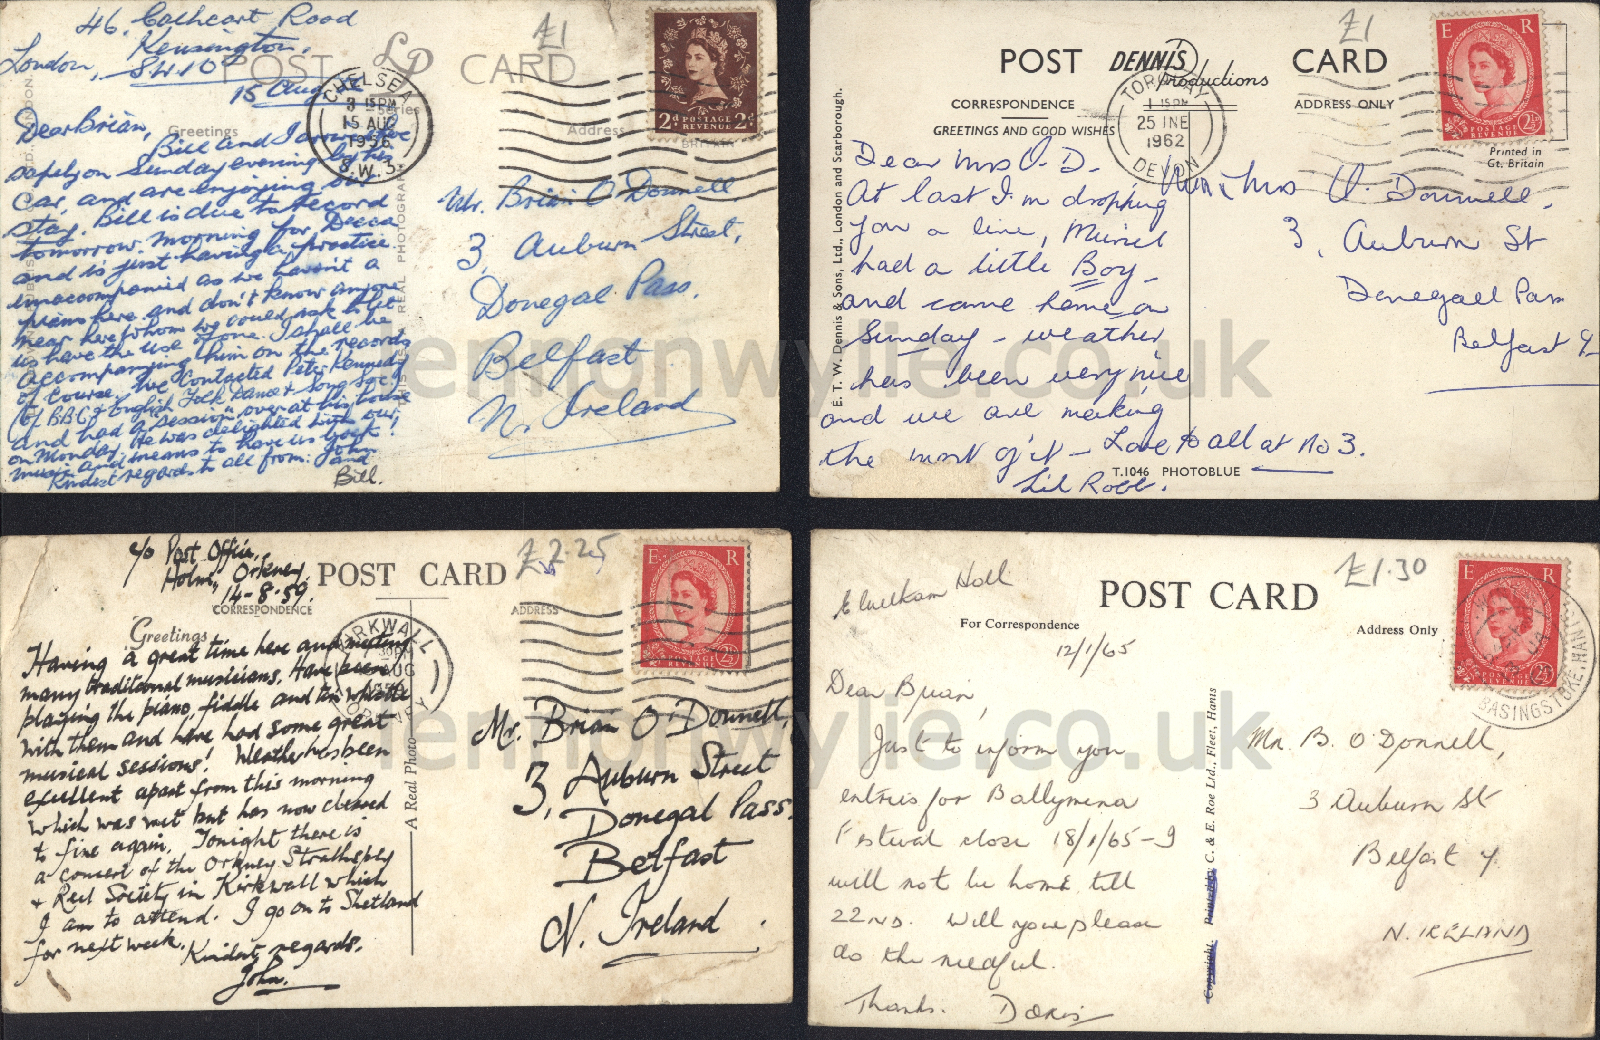 46, Cathcart Road
Kensington,
London, S.W.10
15 Aug
£1
POST LP CARD
Series
CHELSEA
3 15PM
15 AUG
1956
S.W.3.
2d POSTAGE REVENUE 2d
Greetings
Address
BRITAIN
Dear Brian,
Bill and I arrived
safely on Sunday evening by his
car, and are enjoying our
stay. Bill is due to record
tomorrow morning for Decca
and is just having a practice
unaccompanied as we haven't a
piano here and don't know anyone
near here whom we could ask to let
us have the use of one. I shall be
accompanying him on the records
of course. We contacted Peter Kennedy
(of B.B.C. & English Folk Dance & Song Soc.)
and had a "session" over at his house
on Monday. He was delighted with our
music and means to have us back!
Kindest regards to all from: John
and
Bill.
REAL PHOTOGRAPH
Mr. Brian O'Donnell
3, Auburn Street,
Donegal Pass,
Belfast
N. Ireland
£1
POST DENNIS CARD
Productions
CORRESPONDENCE
ADDRESS ONLY
GREETINGS AND GOOD WISHES
TORQUAY
1 15PM
25 JNE
1962
DEVON
E R
POSTAGE REVENUE 2½d
Printed in
Gt. Britain
E. T. W. Dennis & Sons, Ltd., London and Scarborough.
Dear Mrs O.D.
At last I'm dropping
you a line, Muriel
had a little Boy -
and came home on
Sunday - weather
has been very nice
and we are making
the most of it - Love to all at No 3.
Lil Robb.
T.1046 PHOTOBLUE
Mr & Mrs O'Donnell,
3, Auburn St
Donegall Pass
Belfast
lennonwylie.co.uk
c/o Post Office,
Holm, Orkney,
14-8-59.
POST CARD
£2.25
CORRESPONDENCE
ADDRESS
Greetings
KIRKWALL
30PM
AUG
1959
ORKNEY
E R
POSTAGE REVENUE 2½d
Having a great time here and meeting
many traditional musicians. Have been
playing the piano, fiddle and tin whistle
with them and have had some great
musical sessions! Weather has been
excellent apart from this morning
which was wet but has now cleared
to fine again. Tonight there is
a concert of the Orkney Strathspey
& Reel Society in Kirkwall which
I am to attend. I go on to Shetland
for next week.
Kindest regards,
John.
A Real Photo
Mr. Brian O'Donnell,
3, Auburn Street
Donegal Pass,
Belfast
N. Ireland.
Elvetham Hall
POST CARD
£1.30
For Correspondence
Address Only
12/1/65
E R
POSTAGE REVENUE 2½d
BASINGSTOKE, HANTS
Dear Brian,
Just to inform you
entries for Ballymena
Festival close 18/1/65 - I
will not be home till
22nd. Will you please
do the needful.
Thanks. Doris
Copyright. Printed by C. & E. Roe Ltd., Fleet, Hants
Mr. B. O'Donnell,
3 Auburn St
Belfast 7
N. IRELAND
lennonwylie.co.uk